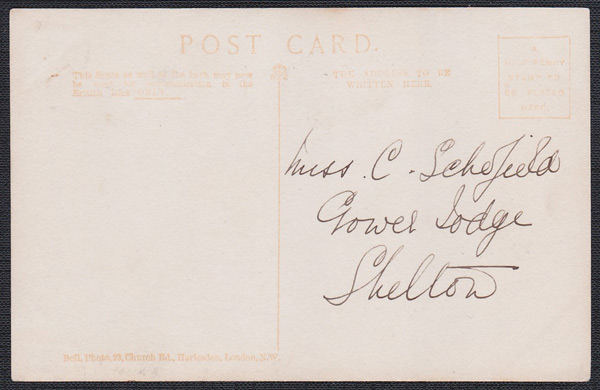 POST CARD.
This space as well as the back may now
be used for Communication in the
British Isles ONLY.
THE ADDRESS TO BE
WRITTEN HERE.
A
HALFPENNY
STAMP TO
BE PLACED
HERE.
Miss. C. Schofield
Gower Lodge
Shelton
Bell, Photo, 23, Church Rd., Harlesden, London, N.W.